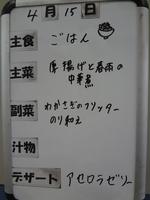 4月15日
主食 ごはん
主菜 厚揚げと春雨の
中華煮
副菜 わかさぎのフリッター
のり和え
汁物
デザート アセロラゼリー